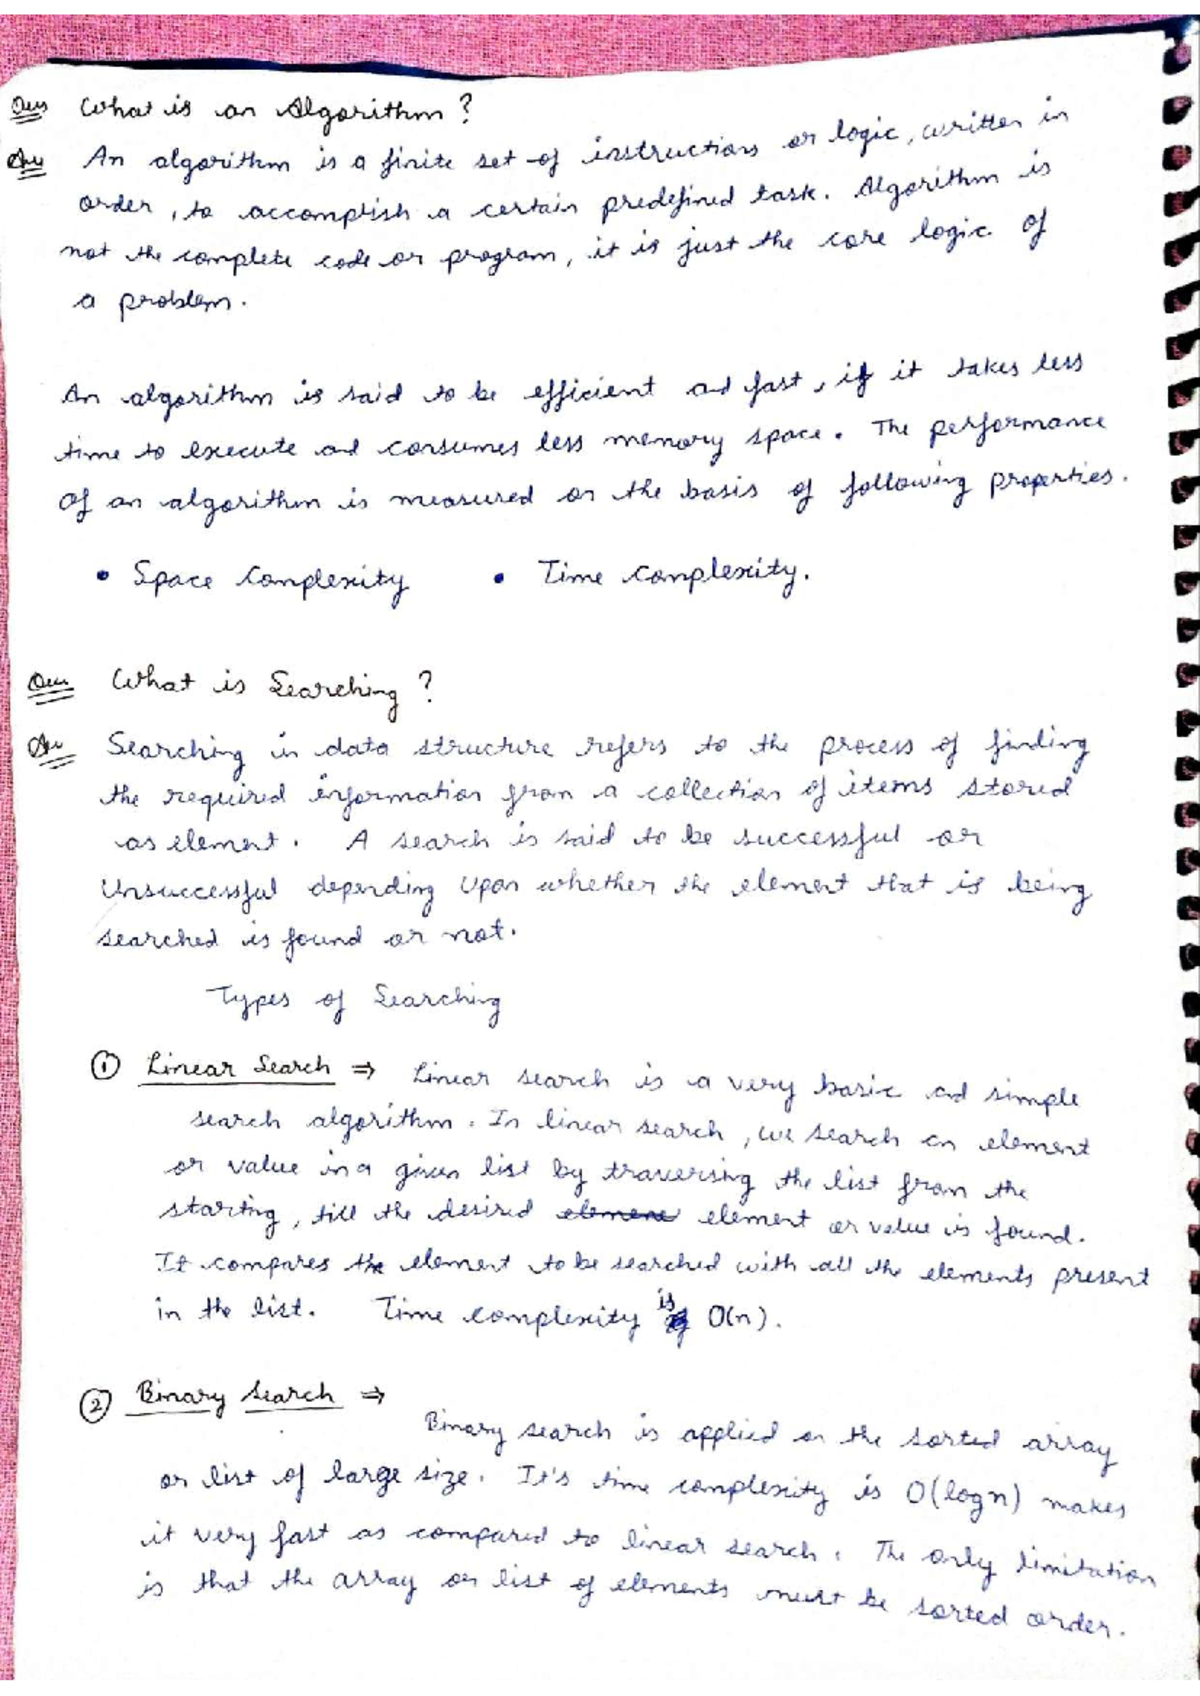 Ques What is an Algorithm?
Ans An algorithm is a finite set of instructions or logic, written in
order, to accomplish a certain predefined task. Algorithm is
not the complete code or program, it is just the core logic of
a problem.
An algorithm is said to be efficient and fast, if it takes less
time to execute and consumes less memory space. The performance
of an algorithm is measured on the basis of following properties.
• Space Complexity • Time Complexity.
Ques What is Searching?
Ans Searching in data structure refers to the process of finding
the required information from a collection of items stored
as element. A search is said to be successful or
Unsuccessful depending upon whether the element that is being
searched is found or not.
Types of Searching
① Linear Search ⇒ Linear search is a very basic and simple
search algorithm. In linear search, we search an element
or value in a given list by traversing the list from the
starting, till the desired element or value is found.
It compares the element to be searched with all the elements present
in the list. Time complexity is O(n).
② Binary Search ⇒
Binary search is applied on the sorted array
or list of large size. It's time complexity is O(log n) makes
it very fast as compared to linear search. The only limitation
is that the array or list of elements must be sorted order.